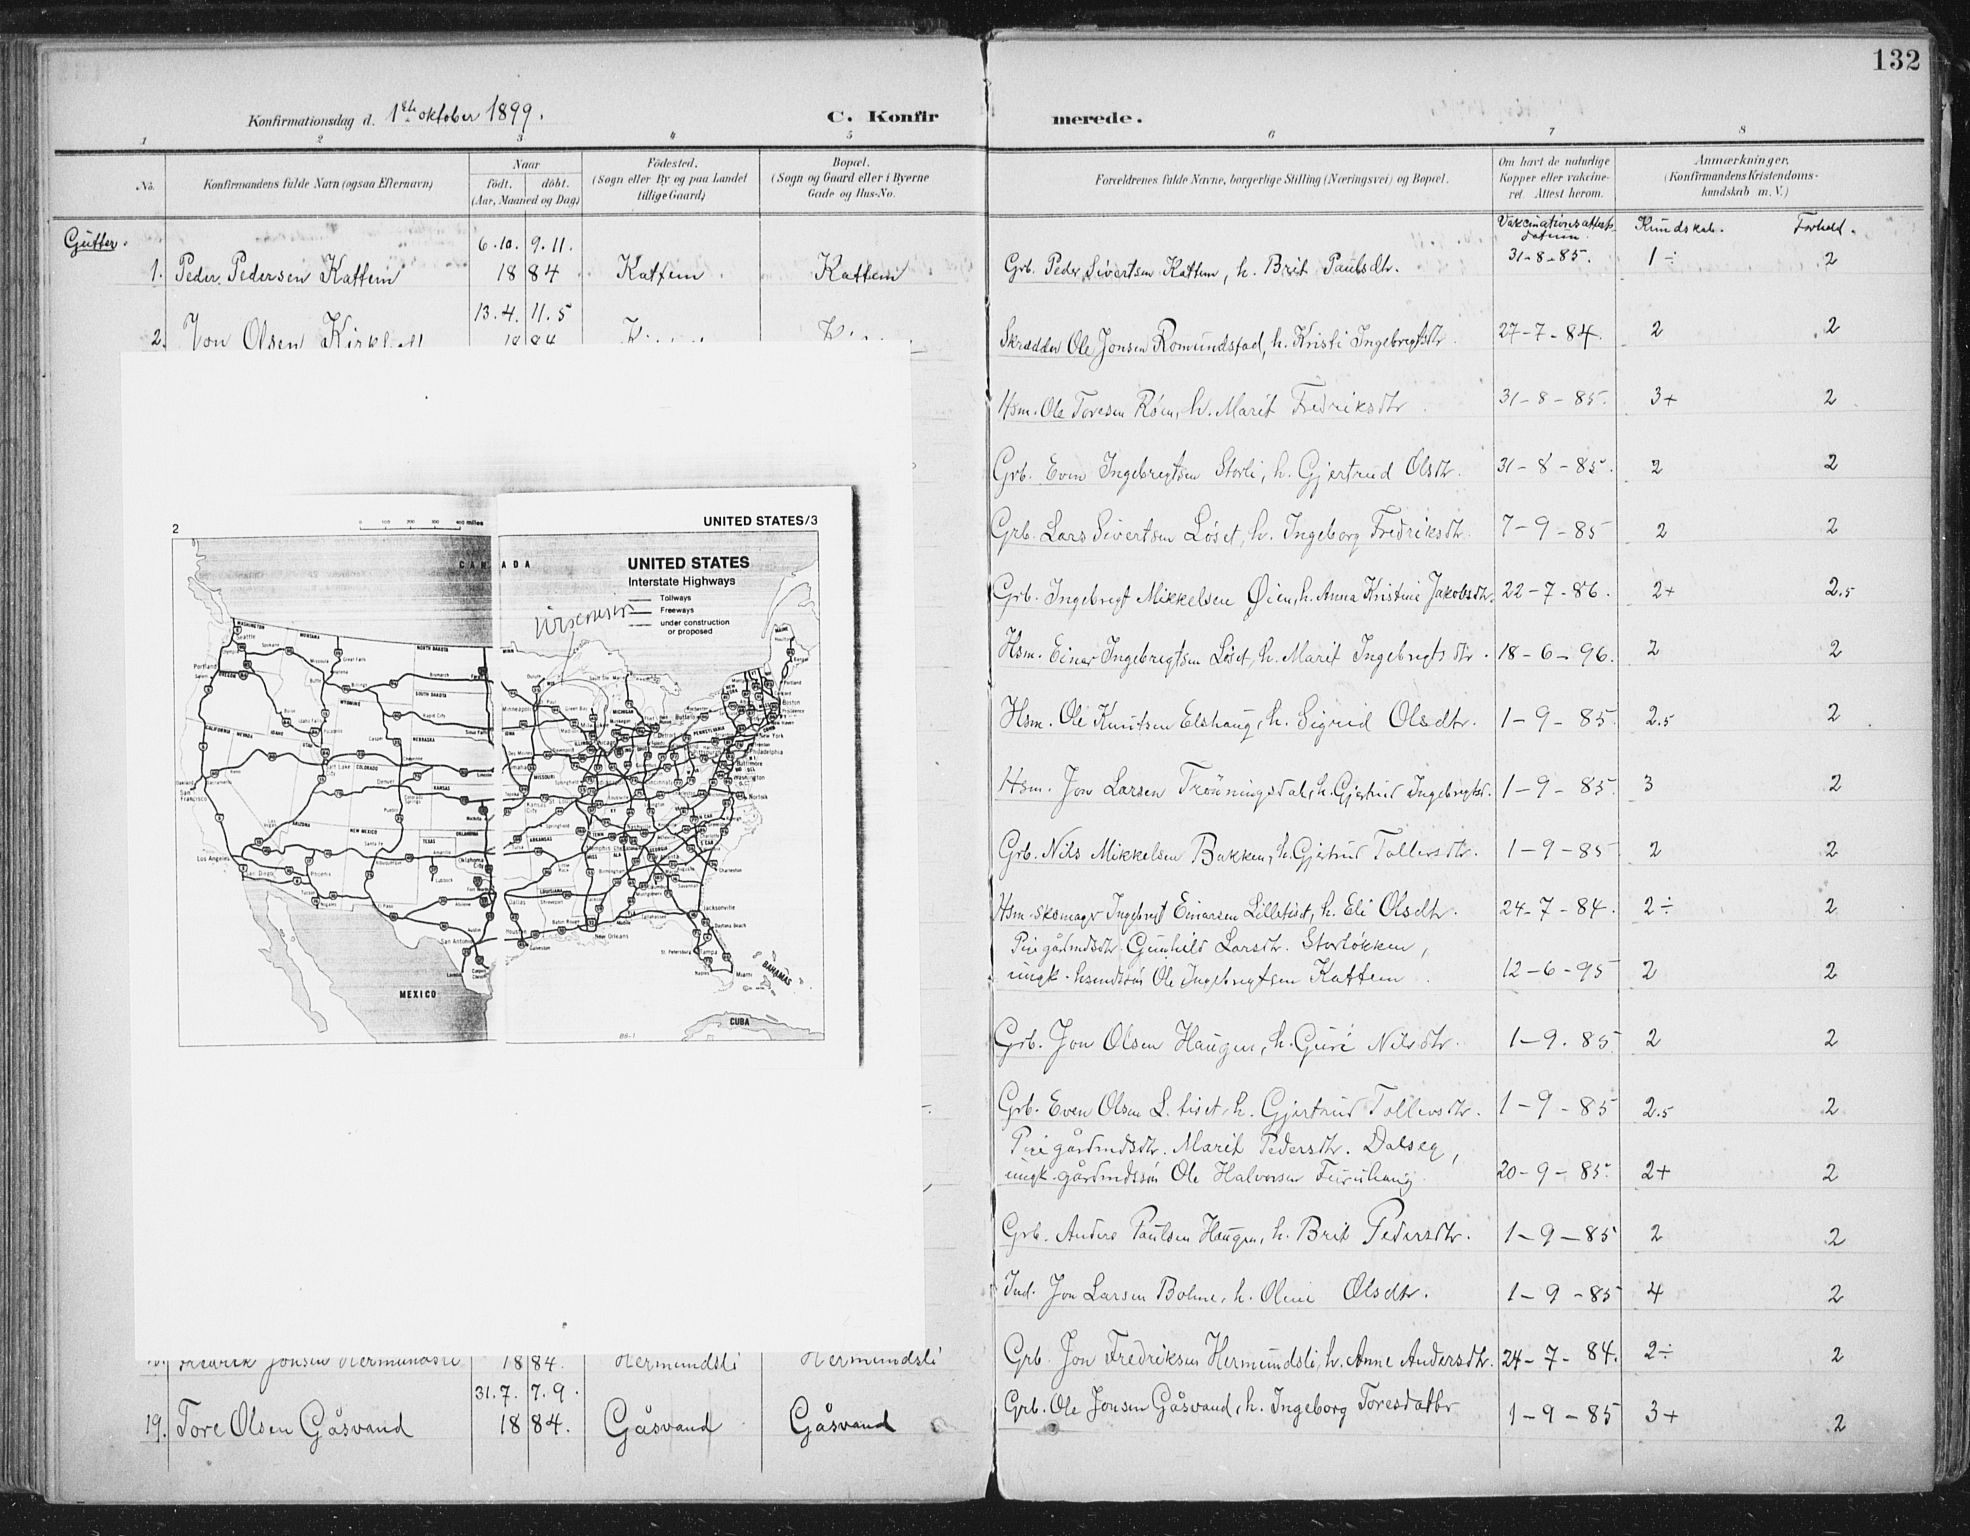 132
Konfirmationsdag d. 1ste oktober 1899.
C. Konfirmerede.
1 2 3 4 5 6 7 8
No.
Konfirmandens fulde Navn (ogsaa Efternavn)
Naar
födt. döbt.
(Aar, Maaned og Dag)
Födested.
(Sogn eller By og paa Landet
tillige Gaard)
Bopæl.
(Sogn og Gaard eller i Byerne
Gade og Hus-No.
Forældrenes fulde Navne, borgerlige Stilling (Næringsvei) og Bopæl.
Om havt de naturlige
Kopper eller vakcine-
ret. Attest herom.
Anmærkninger.
(Konfirmandens Kristendoms-
kundskab m. V.)
Gutter.
Vaccinationsattest-
datum.
Kundskab.
Forhold.
6.10. 9.11.
1. Peder Pedersen Kattem 18 84 Kattem Kattem
Grb. Peder Sivertsen Kattem, h. Brit Paulsdtr. 31-8-85. 1÷ 2
13.4. 11.5
2. Jon Olsen
Skrædder Ole Jonsen Romundstad, h. Kristi Ingebrigtsdtr. 27-7-84. 2 2
Hsm. Ole Toresen Röen, h. Marit Fredriksdtr 31-8-85. 3+ 2
Grb. Even Ingebrigtsen Storli, h. Gjertrud Olsdtr. 31-8-85. 2 2
Grb. Lars Sivertsen Löset, h. Ingeborg Fredriksdtr. 7-9-85 2 2
Grb. Ingebrigt Mikkelsen Øien, h. Anna Kristine Jakobsdtr. 22-7-86. 2+ 2.5
Hsm. Einar Ingebrigtsen Löset, h. Marit Ingebrigtsdtr. 18-6-96. 2 2
Hsm. Ole Knutsen Elshaug, h. Sigrid Olsdtr. 1-9-85. 2.5 2
Hsm. Jon Larsen Tröningsdal, h. Gjertrud Ingebrigtsd. 1-9-85. 3 2
Grb. Nils Mikkelsen Bakken, h. Gjertrud Tollevsdtr. 1-9-85 2 2
Hsm. Skomager Ingebrigt Einarsen Lilletiset, h. Eli Olsdtr. 24-7-84. 2÷ 2
Pige gårdmdsdtr. Gunhild Larsdtr. Storlökken,
ungk. Ole Ingebrigtsen Kattem 12-6-95 2 2
Grb. Jon Olsen Haugen, h. Guri Nilsdtr. 1-9.85 2 2
Grb. Even Olsen L. tiset, h. Gjertrud Tollevsdtr. 1-9-85 2.5 2
Pige gårdmdsdtr. Marit Pedersdtr. Dalseg,
ungk. gårdmdssön Ole Halvorsen Furuhaug. 20-9-85. 2+ 2
Grb. Anders Paulsen Haugen, h. Brit Pedersdtr. 1-9-85 2 2
Ind. Jon Larsen Bolme, h. Oline Olsdtr. 1-9-85 4 2
Fredrik Jonsen Hermundsli 18 84. Hermundsli Hermundsli
Grb. Jon Fredriksen Hermundsli, h. Anne Andersdtr. 24-7-84. 2÷ 2
31.7. 7.9.
19. Tore Olsen Gåsvand 18 84. Gåsvand Gåsvand
Grb. Ole Jonsen Gåsvand, h. Ingeborg Toresdatter 1-9-85 3+ 2
2
0 100 200 300 400 miles
UNITED STATES/3
CANADA
UNITED STATES
Interstate Highways
Tollways
Freeways
under construction
or proposed
Wisconsin
WASHINGTON
Seattle
Spokane
MONTANA
Great Falls
NORTH DAKOTA
Portland
Salem
OREGON
Butte
Billings
Bismarck
SOUTH DAKOTA
WYOMING
Rapid City
Boise
IDAHO
Idaho Falls
Pocatello
Casper
NEBRASKA
Sioux Falls
CALIFORNIA
NEVADA
UTAH
Salt Lake
City
COLORADO
Cheyenne
Denver
Lincoln
Oakland
San
Francisco
Sacramento
Reno
Pueblo
Colorado
Springs
KANSAS
Wichita
Las
Vegas
ARIZONA
NEW MEXICO
Santa Fe
Los Angeles
San Diego
Phoenix
Tucson
Nogales
Albuquerque
El Paso
TEXAS
Amarillo
Lubbock
Abilene
OKLAHOMA
Oklahoma
City
Fort Worth
Dallas
Austin
San Antonio
Laredo
Corpus
Christi
Houston
Galveston
MEXICO
MINN
Duluth
Minneapolis
St. Paul
WIS
Green Bay
Madison
Milwaukee
MICHIGAN
Detroit
Buffalo
MAINE
Bangor
Portland
Boston
Providence
New York
Philadelphia
Baltimore
Washington
PENNSYLVANIA
Pittsburgh
Norfolk
IOWA
Des Moines
Omaha
Chicago
MISSOURI
Kansas
City
St. Louis
Springfield
ARKANSAS
Little
Rock
Tulsa
TENN
Memphis
Nashville
MISS
ALA
Birmingham
Montgomery
GEORGIA
Atlanta
Savannah
Charleston
S CAR
LOUISIANA
Shreveport
Baton Rouge
New Orleans
Mobile
Tallahassee
Jacksonville
Daytona Beach
St. Petersburg
Tampa
Naples
Miami
BAHAMAS
CUBA
86-1